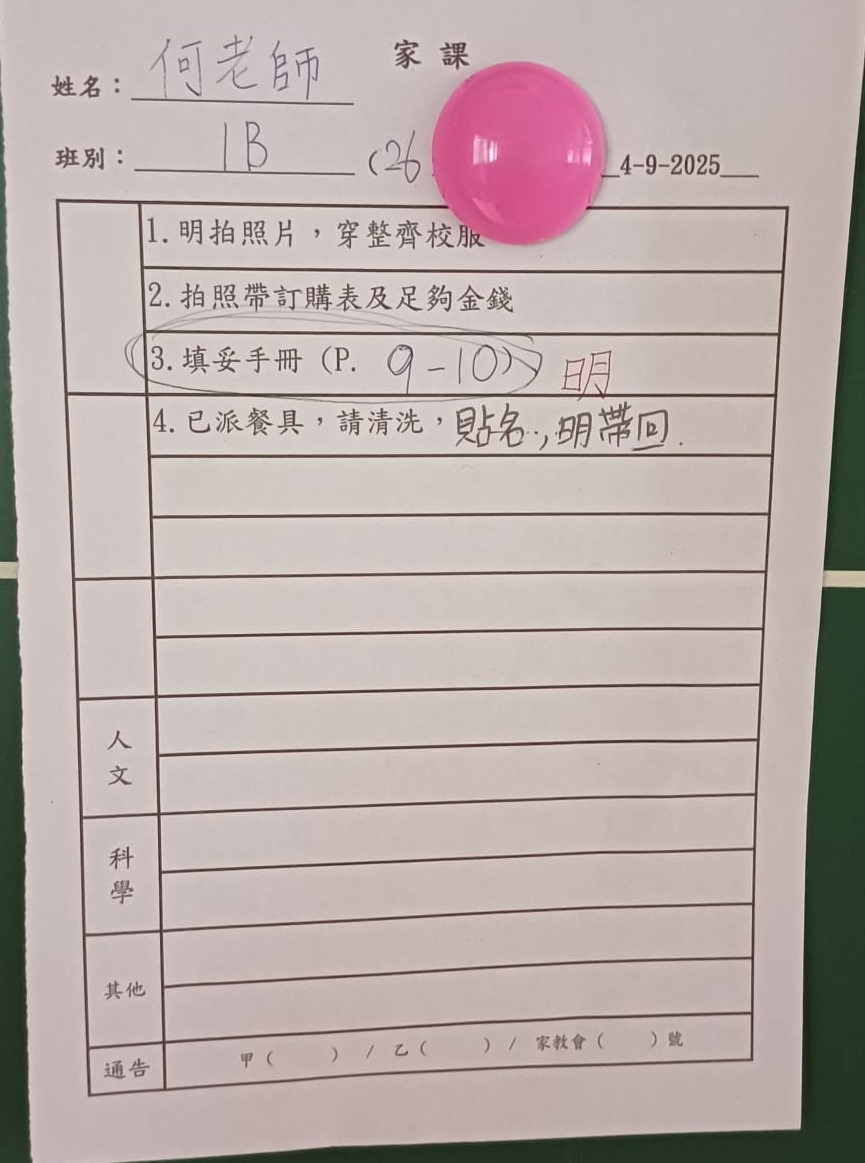 家課
姓名：何老師
班別：1B (26 4-9-2025
1. 明拍照片，穿整齊校服
2. 拍照帶訂購表及足夠金錢
3. 填妥手冊 (P. 9-10) 明
4. 已派餐具，請清洗，貼名，明帶回.
人文
科學
其他
通告 甲（ ）/ 乙（ ）/ 家教會（ ）號